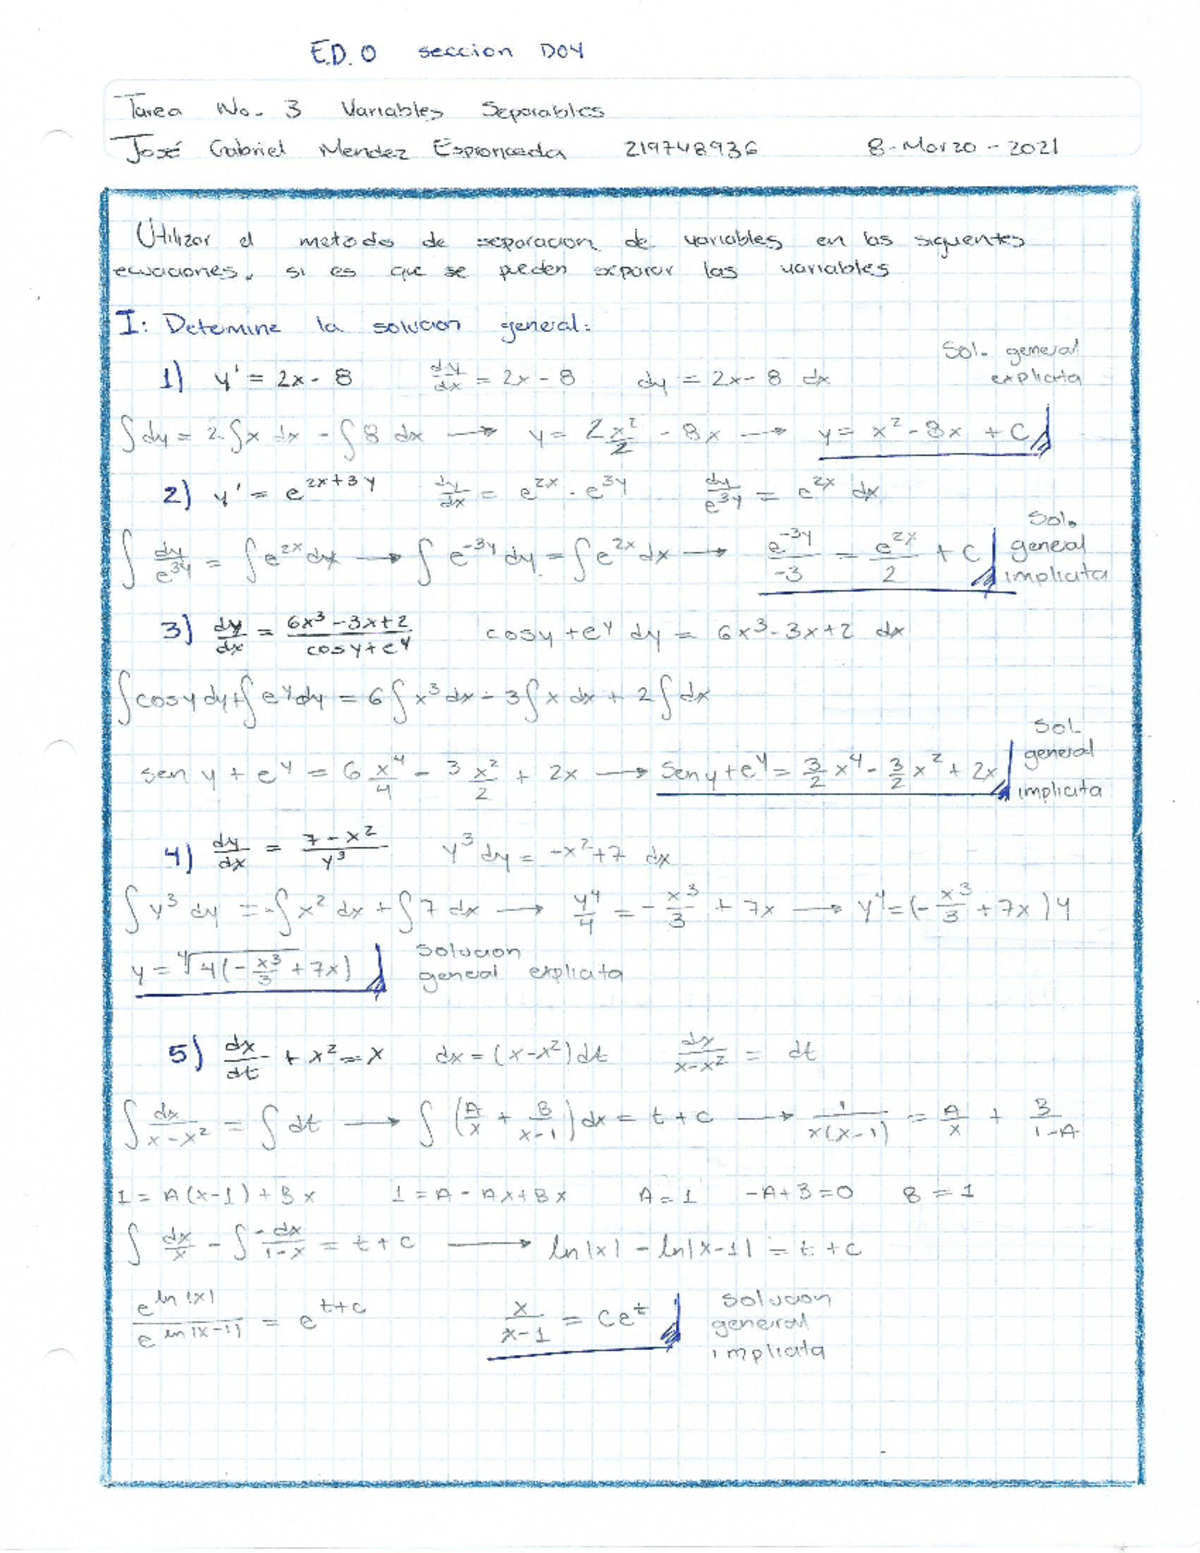 E.D.O seccion D04
Tarea No. 3 Variables Separables
José Gabriel Mendez Espronceda 219748936 8-Marzo-2021
Utilizar el metodo de separacion de variables en las siguientes
ecuaciones, si es que se pueden separar las variables
I: Detemine la solucion general:
Sol. general
1) y' = 2x - 8 dy/dx = 2x - 8 dy = 2x - 8 dx explicita
∫dy = 2∫x dx - ∫8 dx → y = 2 x²/2 - 8x → y = x² - 8x + C
2) y' = e^(2x+3y) dy/dx = e^(2x) · e^(3y) dy/e^(3y) = e^(2x) dx
Sol.
∫ dy/e^(3y) = ∫e^(2x) dx → ∫ e^(-3y) dy = ∫e^(2x) dx → e^(-3y)/-3 = e^(2x)/2 + C geneal
implicita
3) dy/dx = (6x³ - 3x + 2)/(cosy + e^y) cosy + e^y dy = 6x³ - 3x + 2 dx
∫cosy dy + ∫e^y dy = 6∫x³ dx - 3∫x dx + 2∫dx
Sol
general
sen y + e^y = 6 x⁴/4 - 3 x²/2 + 2x → Sen y + e^y = 3/2 x⁴ - 3/2 x² + 2x
implicita
4) dy/dx = (7 - x²)/y³ y³ dy = -x² + 7 dx
∫y³ dy = -∫x² dx + ∫7 dx → y⁴/4 = - x³/3 + 7x → y⁴ = (- x³/3 + 7x) 4
solucion
y = ⁴√(4(- x³/3 + 7x)) geneal explicita
5) dx/dt + x² = x dx = (x - x²) dt dx/(x - x²) = dt
∫ dx/(x - x²) = ∫ dt → ∫ (A/x + B/(x-1)) dx = t + c → 1/(x(x-1)) = A/x + B/(1-A)
1 = A(x-1) + Bx 1 = A - Ax + Bx A = 1 -A + B = 0 B = 1
∫ dx/x - ∫ -dx/(1-x) = t + c → ln|x| - ln|x-1| = t + c
e^(ln|x|)/e^(ln|x-1|) = e^(t+c) x/(x-1) = ce^t solucion
general
implicita